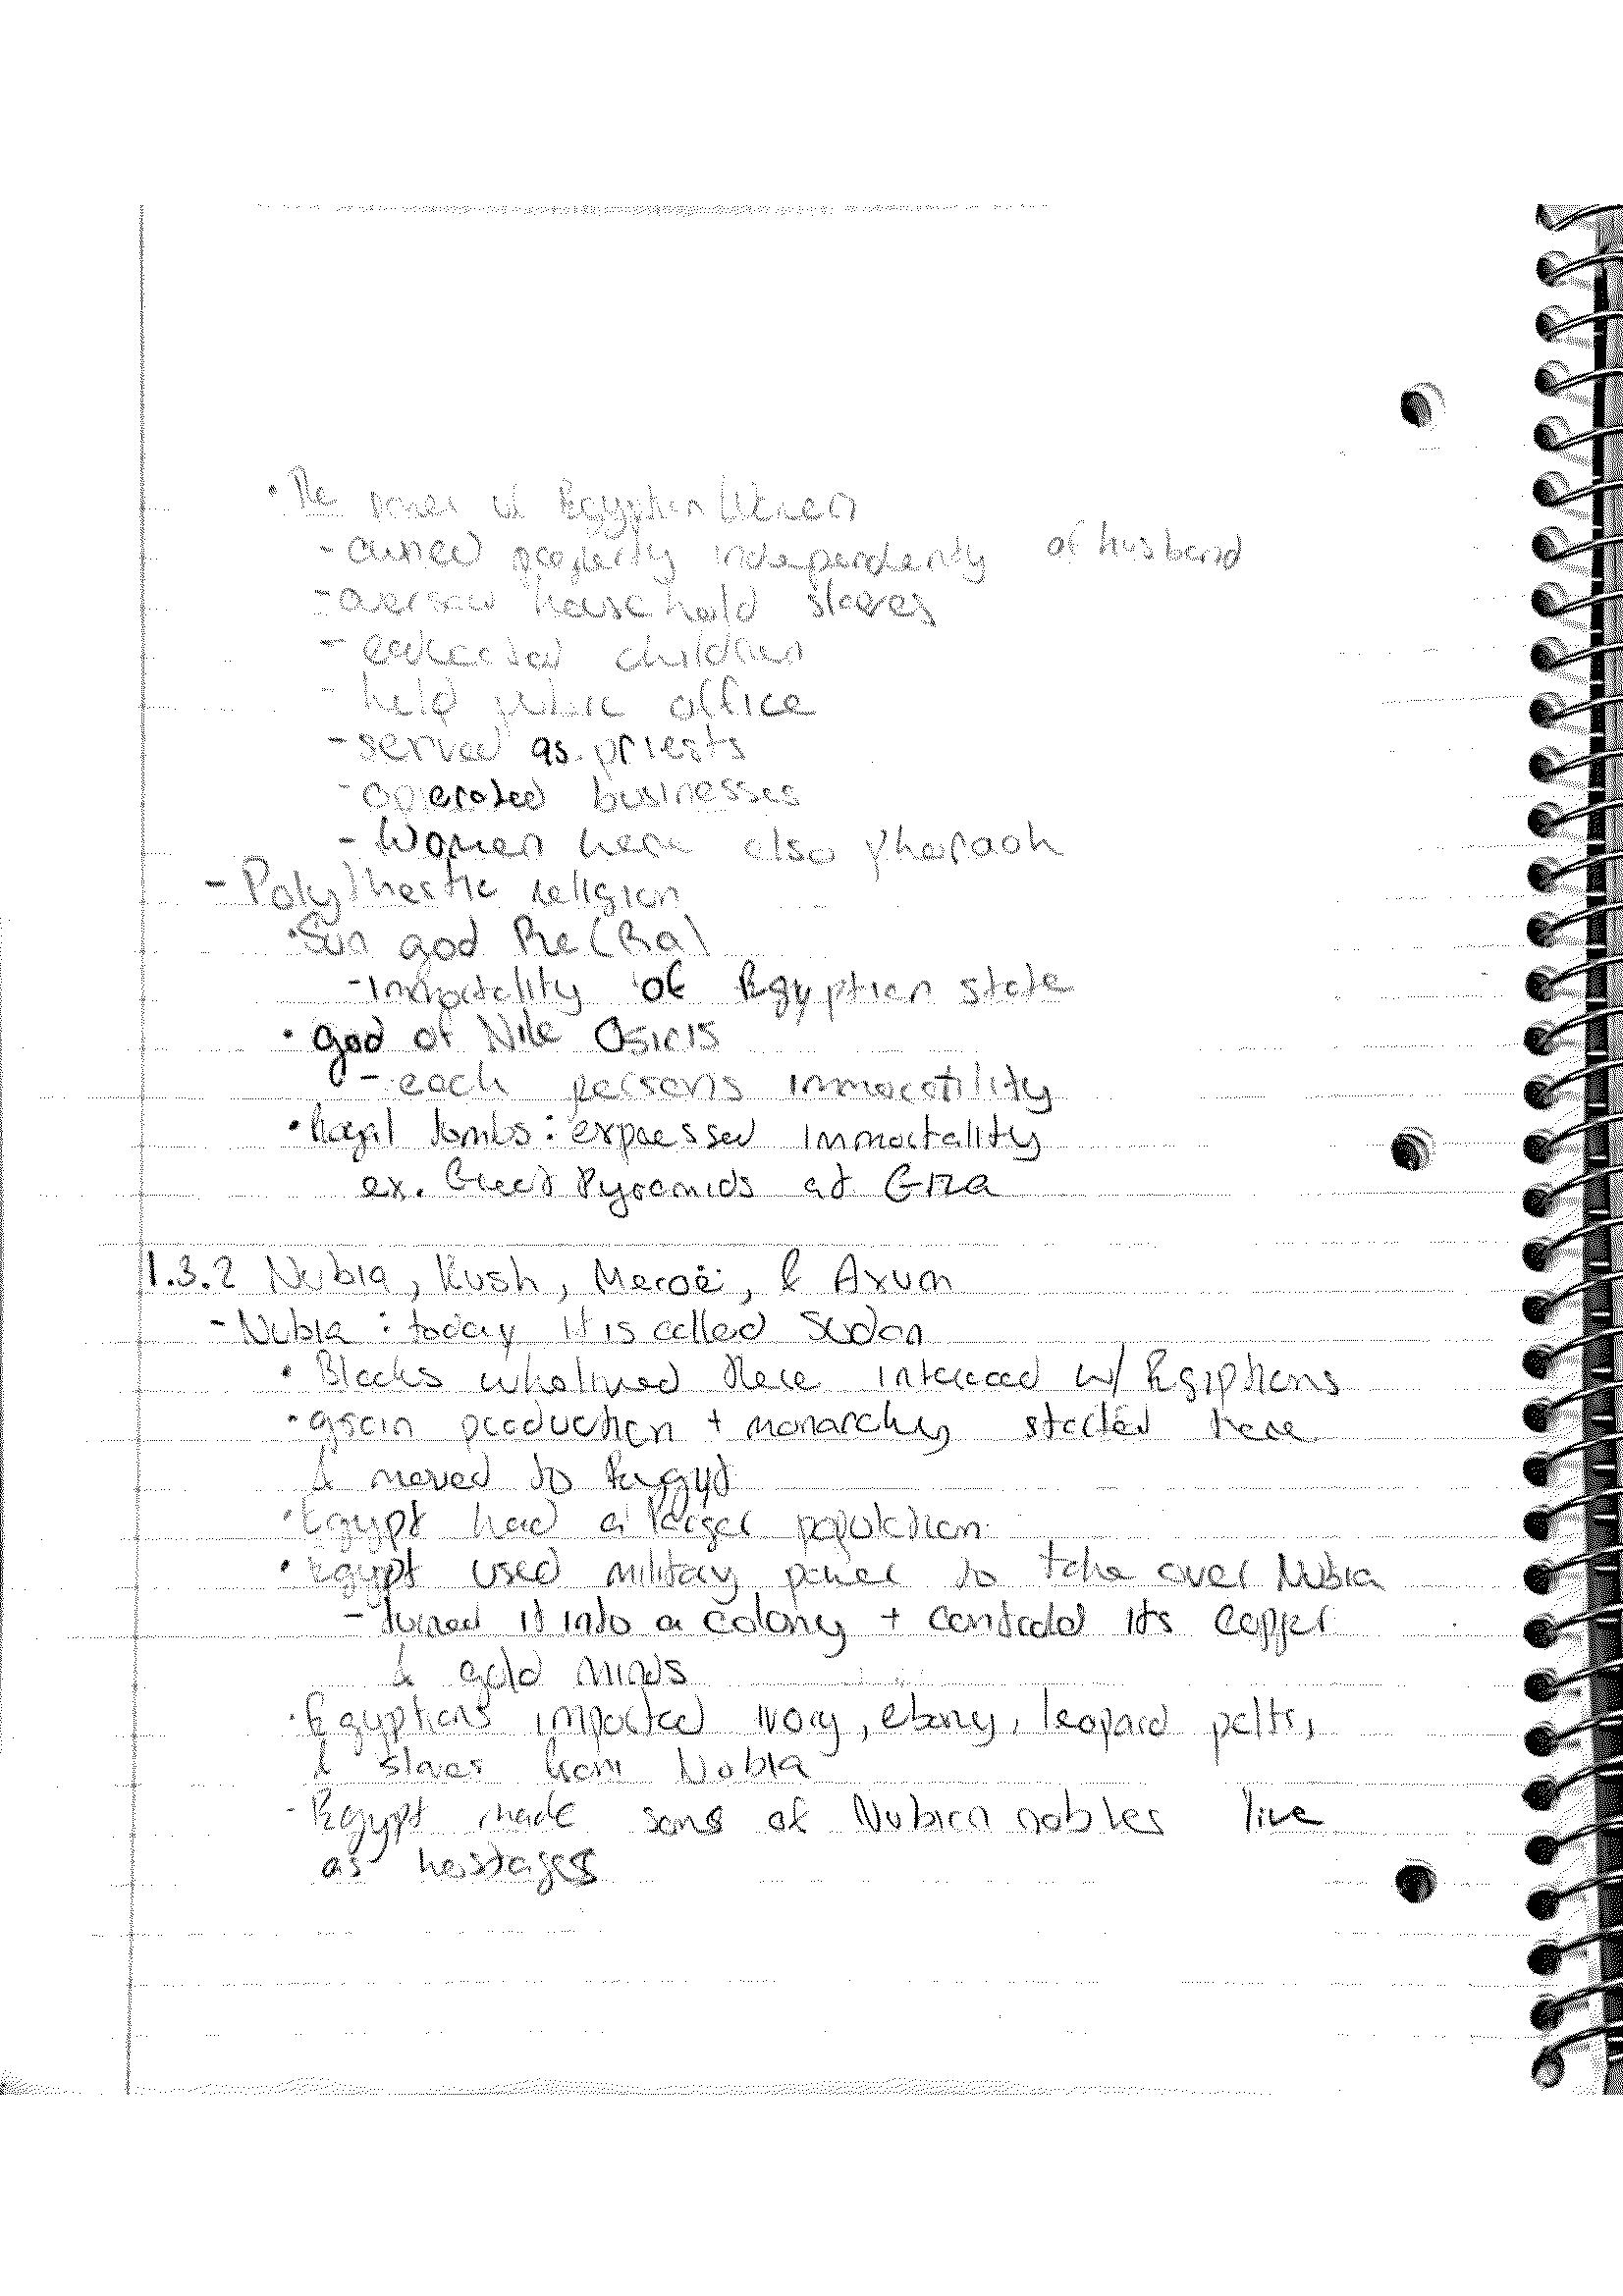 • The power of Egyptian Women
- owned property independenty of husband
- oversaw household slaves
- educated children
- held public office
- served as priests
- operated businesses
- Women were also pharaoh
- Polythestic religion
• Sun god Re (Ra)
- Immortality of Egyptian state
• god of Nile Osiris
- each persons immortility
• Royal tombs: expressed immortality
ex. Great Pyramids at Giza
1.3.2 Nubia, Kush, Meroë, & Axum
- Nubia: today it is called Sudan
• Blacks who lived there interaced w/ Egiptians
• grain production + monarchy started here
& moved to Eygypt
• Egypt had a larger population
• Egypt used military power to take over Nubia
- turned it into a colony + controld its copper
& gold minds
• Egyptians imported ivory, ebony, leopard pelts,
& slaves from Nubia
- Egypt made sons of Nubian nobles live
as hostages